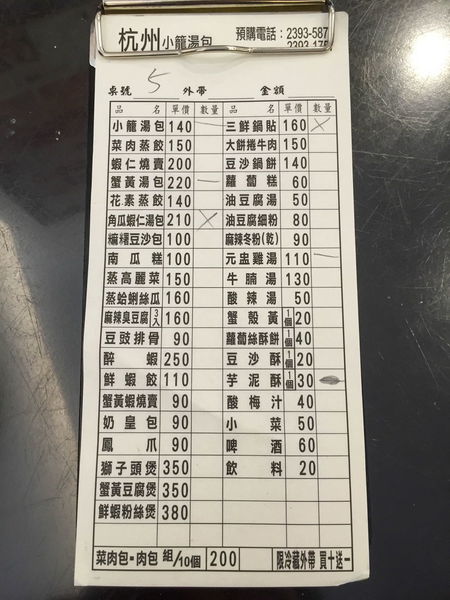 杭州小籠湯包 預購電話：2393-587
桌號 5 外帶 金額
品名 單價 數量 品名 單價 數量
小籠湯包 140 一 三鮮鍋貼 160 ×
菜肉蒸餃 150 大餅捲牛肉 150
蝦仁燒賣 200 豆沙鍋餅 140
蟹黃湯包 220 一 蘿蔔糕 60
花素蒸餃 140 油豆腐湯 50
角瓜蝦仁湯包 210 × 油豆腐細粉 80
豆沙包 100 麻辣冬粉(乾) 90
南瓜糕 100 元盅雞湯 110 一
蒸高麗菜 150 牛腩湯 130
蒸蛤蜊絲瓜 160 酸辣湯 50
麻辣臭豆腐 3入 160 蟹殼黃 1個 20
豆豉排骨 90 蘿蔔絲酥餅 1個 40
醉蝦 250 豆沙酥 1個 20
鮮蝦餃 110 芋泥酥 1個 30
蟹黃蝦燒賣 90 酸梅汁 40
奶皇包 90 小菜 50
鳳爪 90 啤酒 60
獅子頭煲 350 飲料 20
蟹黃豆腐煲 350
鮮蝦粉絲煲 380
菜肉包·肉包 組/10個 200 限冷藏外帶 買十送一